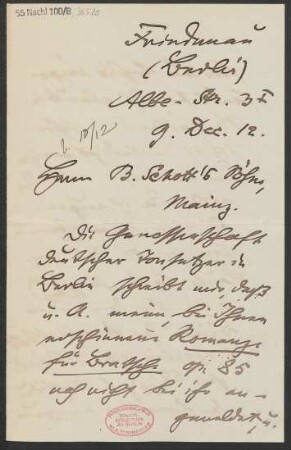 55 Nachl 100/B,
Friedenau
(Berlin)
Albe-Str. 3 I
9. Dec. 12.
b. 10/12
Herrn B. Schott's Söhne,
Mainz.
Die Genossenschaft
deutscher Tonsetzer in
Berlin schreibt mir, daß
u. A. meine, bei Ihnen
erschienene Romanze
für Bratsche op. 85
noch nicht bei ihr an-
gemeldet, u.